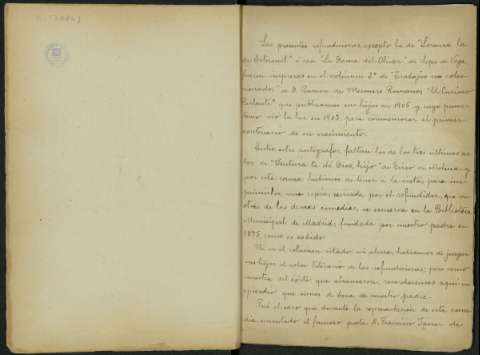 Las presentes refundiciones, excepto la de "Lorenza la
de Estercuel" ó sea "La Dama del Olivar" de Lope de Vega
fueron impresas en el volumen 2º de "Trabajos no colec-
cionados" de D. Ramon de Mesonero Romanos "El Curioso
Parlante" que publicamos sus hijos en 1905 y cuyo primer
tomo vió la luz en 1903, para conmemorar el primer
centenario de su nacimiento.
Entre estos autógrafos, faltan los de los tres ultimos ac-
tos de "Ventura te dé Dios, hijo" de Tirso de Molina y
por esta causa hubimos de tener á la vista, para im-
primirlos, una copia, revisada por el refundidor, que con
otras de las demas comedias, se conserva en la Biblioteca
Municipal de Madrid, fundada por nuestro padre en
1875, como es sabido.
Ni en el volumen citado ni ahora, habiamos de juzgar
sus hijos el valor literario de las refundiciones; pero como
muestra del éxito que alcanzaron recordaremos aquí un
episodio que oimos de boca de nuestro padre.
Fué el caso que durante la representación de esta come-
dia encontrando al famoso poeta D. Francisco